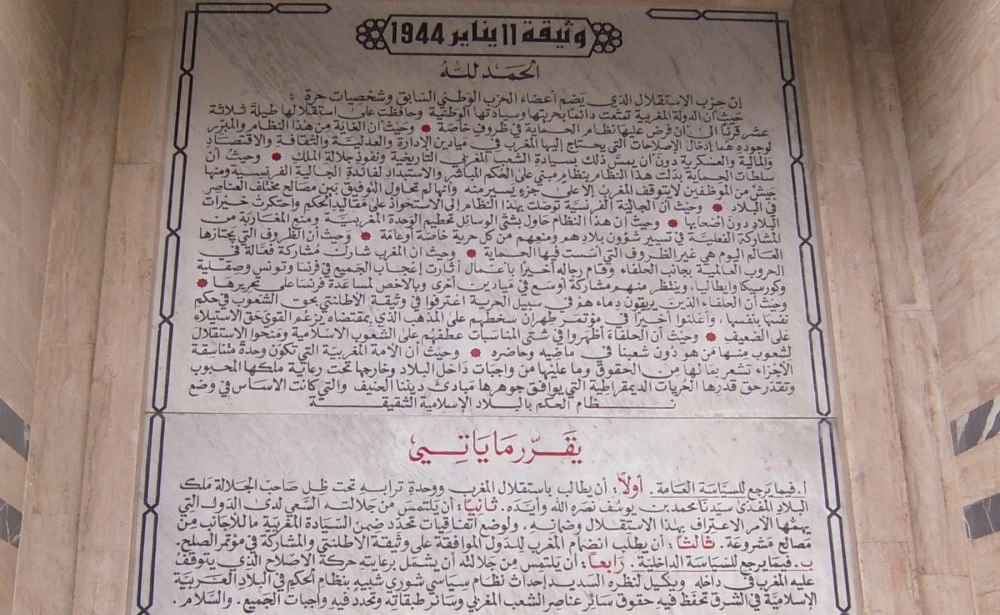 وثيقة 11 يناير 1944
الحمد لله
إن حزب الاستقلال الذي يضم أعضاء الحزب الوطني السابق وشخصيات حرة :
حيث أن الدولة المغربية تمتعت دائما بحريتها وسيادتها الوطنية وحافظت على استقلالها طيلة ثلاثة
عشر قرنا الى ان فرض عليها نظام الحماية في ظروف خاصة • وحيث أن الغاية من هذا النظام والمبرر
لوجوده هما إدخال الإصلاحات التي يحتاج إليها المغرب في ميادين الإدارة والعدلية والثقافة والاقتصاد
والمالية والعسكرية دون أن يمس ذلك بسيادة الشعب المغربي التاريخية ونفوذ جلالة الملك • وحيث أن
سلطات الحماية بدلت هذا النظام بنظام مبني على الحكم المباشر والاستبداد لفائدة الجالية الفرنسية ومنها
جيش من الموظفين لا يتوقف المغرب إلا على جزء يسير منه وأنها لم تحاول التوفيق بين مصالح مختلف العناصر
في البلاد • وحيث أن الجالية الفرنسية توصلت بهذا النظام إلى الاستحواذ على مقاليد الحكم واحتكرت خيرات
البلاد دون أصحابها • وحيث أن هذا النظام حاول بشتى الوسائل تحطيم الوحدة المغربية ومنع المغاربة من
المشاركة الفعلية في تسيير شؤون بلادهم ومنعهم من كل حرية خاصة أو عامة • وحيث أن الظروف التي يجتازها
العالم اليوم هي غير الظروف التي أسست فيها الحماية • وحيث أن المغرب شارك مشاركة فعالة في
الحروب العالمية بجانب الحلفاء وقام رجاله أخيرا بأعمال أثارت إعجاب الجميع في فرنسا وتونس وصقلية
وكورسيكا وإيطاليا، وينتظر منهم مشاركة أوسع في ميادين أخرى وبالأخص لمساعدة فرنسا على تحريرها •
وحيث أن الحلفاء الذين يريقون دماءهم في سبيل الحرية اعترفوا في وثيقة الأطلنتي بحق الشعوب في حكم
نفسها بنفسها، وأعلنوا أخيرا في مؤتمر طهران سخطهم على المذهب الذي بمقتضاه يزعم القوي حق الاستيلاء
على الضعيف • وحيث أن الحلفاء أظهروا في شتى المناسبات عطفهم على الشعوب الإسلامية ومنحوا الاستقلال
لشعوب منها من هو دون شعبنا في ماضيه وحاضره • وحيث أن الأمة المغربية التي تكون وحدة متناسقة
الأجزاء تشعر بما لها من الحقوق وما عليها من واجبات داخل البلاد وخارجها تحت رعاية ملكها المحبوب
وتقدر حق قدرها الحريات الديمقراطية التي يوافق جوهرها مبادئ ديننا الحنيف والتي كانت الأساس في وضع
نظام الحكم بالبلاد الإسلامية الشقيقة
يقرر ما ياتي
أ. فيما يرجع للسياسة العامة . أولا : أن يطالب باستقلال المغرب ووحدة ترابه تحت ظل صاحب الجلالة ملك
البلاد المفدى سيدنا محمد بن يوسف نصره الله وأيده. ثانيا : أن يلتمس من جلالته السعي لدى الدول التي
يهمها الأمر الاعتراف بهذا الاستقلال وضمانه. ولوضع اتفاقيات تحدد ضمن السيادة المغربية ما للأجانب من
مصالح مشروعة . ثالثا : أن يطلب انضمام المغرب للدول الموافقة على وثيقة الأطلنتي والمشاركة في مؤتمر الصلح.
ب. فيما يرجع للسياسة الداخلية . رابعا : أن يلتمس من جلالته أن يشمل برعايته حركة الإصلاح الذي يتوقف
عليه المغرب في داخله ويكل لنظره السديد إحداث نظام سياسي شوري شبيه بنظام الحكم في البلاد العربية
الإسلامية في الشرق تحفظ فيه حقوق سائر عناصر الشعب المغربي وسائر طبقاته وتحدد فيه واجبات الجميع. والسلام .